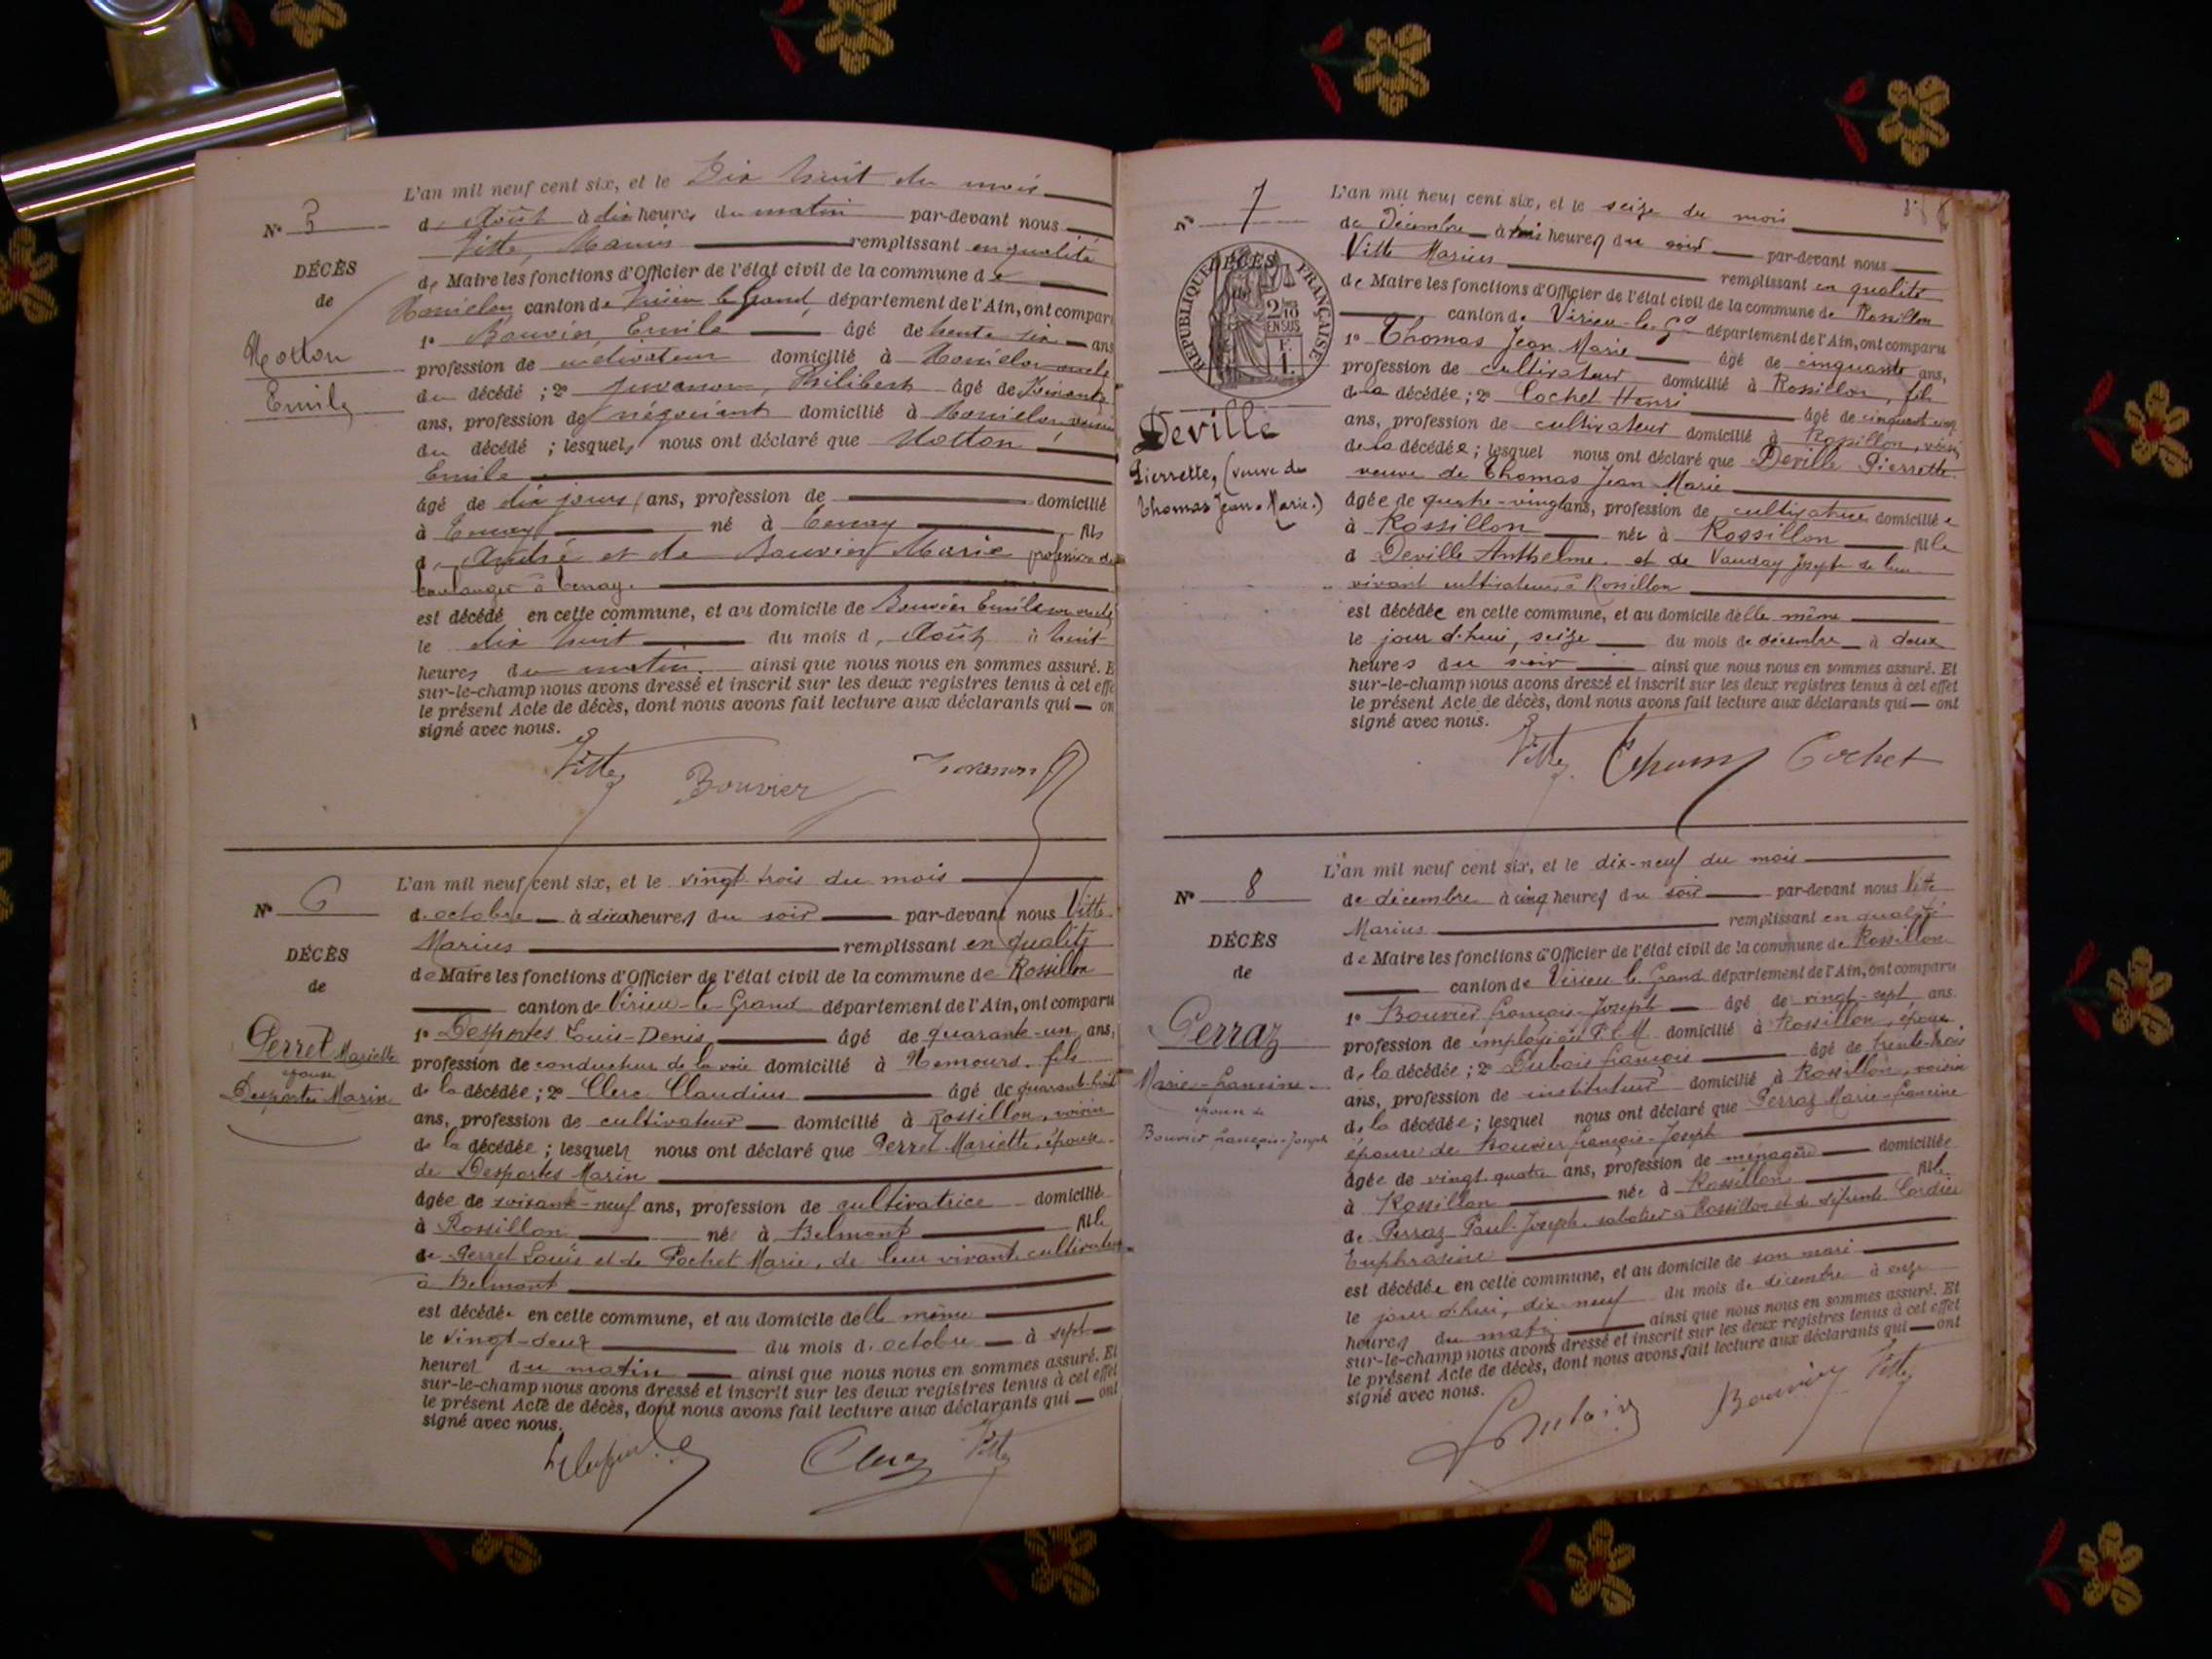 L'an mil neuf cent six, et le Dix huit du mois
N° 5
d'Août à dix heures du matin par-devant nous
Vitte, Marius remplissant en qualité
DÉCÈS
de Maire les fonctions d'Officier de l'état civil de la commune de
de
Rossillon canton de Virieu le Grand, département de l'Ain, ont compar
1° Bouvier Emile âgé de trente six ans
Motton
profession de cultivateur domicilié à Rossillon oncle
Emile
du décédé ; 2° Juvanon, Philibert âgé de
ans, profession de négociant domicilié à Rossillon voisin
du décédé ; lesquels nous ont déclaré que Motton
Emile
âgé de dix jours, ans, profession de domicilié
à Tenay né à Tenay fils
d'André et de Bouvier Marie profession de
boulanger à Tenay.
est décédé en cette commune, et au domicile de Bouvier Emile son oncle
le dix huit du mois d'Août à huit
heures du matin. ainsi que nous nous en sommes assuré. E
sur-le-champ nous avons dressé et inscrit sur les deux registres tenus à cet effe
le présent Acte de décès, dont nous avons fait lecture aux déclarants qui on
signé avec nous.
Vitte Bouvier Juvanon
L'an mil neuf cent six, et le vingt trois du mois
N° 6
d'octobre à deux heures du soir par-devant nous Vitte
Marius remplissant en qualité
DÉCÈS
de Maire les fonctions d'Officier de l'état civil de la commune de Rossillon
de
canton de Virieu-le-Grand département de l'Ain, ont comparu
1° Desportes Louis-Denis âgé de quarante-un ans,
Perret Mariette
profession de conducteur de la voie domicilié à Nemours. fils
épouse
Desportes Marin
de la décédée ; 2° Clerc Claudius âgé de quarante-huit
ans, profession de cultivateur domicilié à Rossillon, voisin
de la décédée ; lesquels nous ont déclaré que Perret Mariette, épouse
de Desportes Marin
âgée de soixante-neuf ans, profession de cultivatrice domicilié
à Rossillon né à Belmont fille
de Perret Louis et de Pochet Marie, de leur vivant cultivateurs
à Belmont
est décédée en cette commune, et au domicile d'elle même
le vingt-deux du mois d'octobre à sept
heures du matin ainsi que nous nous en sommes assuré. Et
sur-le-champ nous avons dressé et inscrit sur les deux registres tenus à cet effet
le présent Acte de décès, dont nous avons fait lecture aux déclarants qui ont
signé avec nous.
Clerc Vitte
L'an mil neuf cent six, et le seize du mois
N° 7
de Décembre à trois heures du soir par-devant nous
Vitte Marius remplissant en qualité
DÉCÈS
de Maire les fonctions d'Officier de l'état civil de la commune de Rossillon
RÉPUBLIQUE FRANÇAISE
2/10 EN SUS
F. 1.
canton de Virieu-le-Gd département de l'Ain, ont comparu
1° Thomas Jean Marie âgé de cinquante ans,
profession de cultivateur domicilié à Rossillon, fils
de la décédée ; 2° Cochet Henri âgé de cinquante cinq
Deville
ans, profession de cultivateur domicilié à Rossillon, voisin
Pierrette, (veuve de
de la décédée ; lesquel nous ont déclaré que Deville Pierrette
Thomas Jean-Marie.)
veuve de Thomas Jean Marie
âgée de quatre-vingt ans, profession de cultivatrice domiciliée
à Rossillon née à Rossillon fille
d Deville Anthelme. et de Vauday Josephte de leur
vivant cultivateurs à Rossillon
est décédée en cette commune, et au domicile d'elle même
le jour d'hui, seize du mois de décembre à deux
heures du soir ainsi que nous nous en sommes assuré. Et
sur-le-champ nous avons dressé et inscrit sur les deux registres tenus à cet effet
le présent Acte de décès, dont nous avons fait lecture aux déclarants qui ont
signé avec nous.
Vitte Thomas Cochet
L'an mil neuf cent six, et le dix-neuf du mois
N° 8
de décembre à cinq heures du soir par-devant nous Vitte
Marius remplissant en qualité
DÉCÈS
de Maire les fonctions d'Officier de l'état civil de la commune de Rossillon
de
canton de Virieu le Grand département de l'Ain, ont comparu
1° Bouvier françois-Joseph âgé de vingt-sept ans
Perraz
profession de employé au P.L.M. domicilié à Rossillon, époux
de la décédée ; 2° Dubois françois âgé de trente-trois
Marie-francine
ans, profession de instituteur domicilié à Rossillon, voisin
épouse de
de la décédée ; lesquel nous ont déclaré que Perraz Marie-francine
Bouvier françois-Joseph
épouse de Bouvier françois-Joseph
âgée de vingt quatre ans, profession de ménagère domiciliée
à Rossillon née à Rossillon fille
de Perraz Paul-Joseph, sabotier à Rossillon et de défunte Cordier
Euphrasine
est décédée en cette commune, et au domicile de son mari
le jour d'hui, dix neuf du mois de décembre à onze
heures du matin ainsi que nous nous en sommes assuré. Et
sur-le-champ nous avons dressé et inscrit sur les deux registres tenus à cet effet
le présent Acte de décès, dont nous avons fait lecture aux déclarants qui ont
signé avec nous.
Dubois Bouvier Vitte